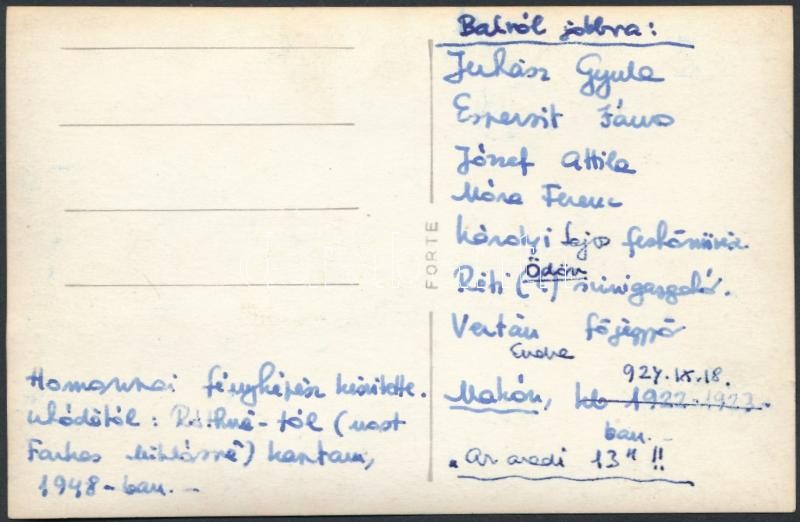 Balról jobbra:
Juhász Gyula
Espersit János
József Attila
Móra Ferenc
Károlyi Lajos festőművész
Réti (?) Ödön színigazgató.
Vertán Endre főjegyző
Makón, kb 1922-1923
924.IX.18.
ban. —
"Az aradi 13" !!
FORTE
Homonnai fényképész készítette.
Ráthné-tól (most
Farkas Miklósné) kaptam,
1948-ban. —